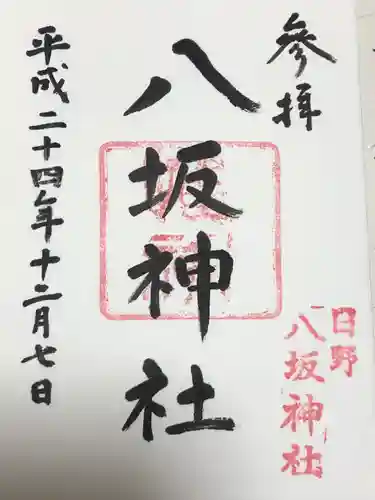 參拝
八坂神社
日野
八坂神社
平成二十四年十二月七日